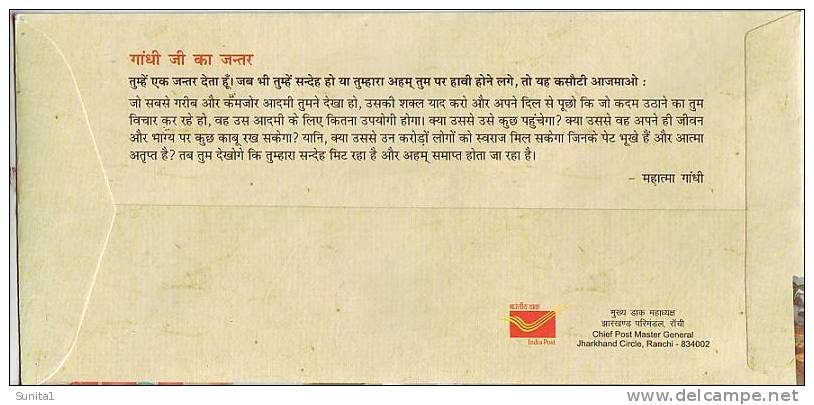 गांधी जी का जन्तर
तुम्हें एक जन्तर देता हूँ। जब भी तुम्हें सन्देह हो या तुम्हारा अहम् तुम पर हावी होने लगे, तो यह कसौटी आजमाओ :
जो सबसे गरीब और कमजोर आदमी तुमने देखा हो, उसकी शक्ल याद करो और अपने दिल से पूछो कि जो कदम उठाने का तुम
विचार कर रहे हो, वह उस आदमी के लिए कितना उपयोगी होगा। क्या उससे उसे कुछ पहुंचेगा? क्या उससे वह अपने ही जीवन
और भाग्य पर कुछ काबू रख सकेगा? यानि, क्या उससे उन करोड़ों लोगों को स्वराज मिल सकेगा जिनके पेट भूखे हैं और आत्मा
अतृप्त है? तब तुम देखोगे कि तुम्हारा सन्देह मिट रहा है और अहम् समाप्त होता जा रहा है।
– महात्मा गांधी
भारतीय डाक
India Post
मुख्य डाक महाध्यक्ष
झारखण्ड परिमंडल, राँची
Chief Post Master General
Jharkhand Circle, Ranchi - 834002
Sunita1
delcampe.net